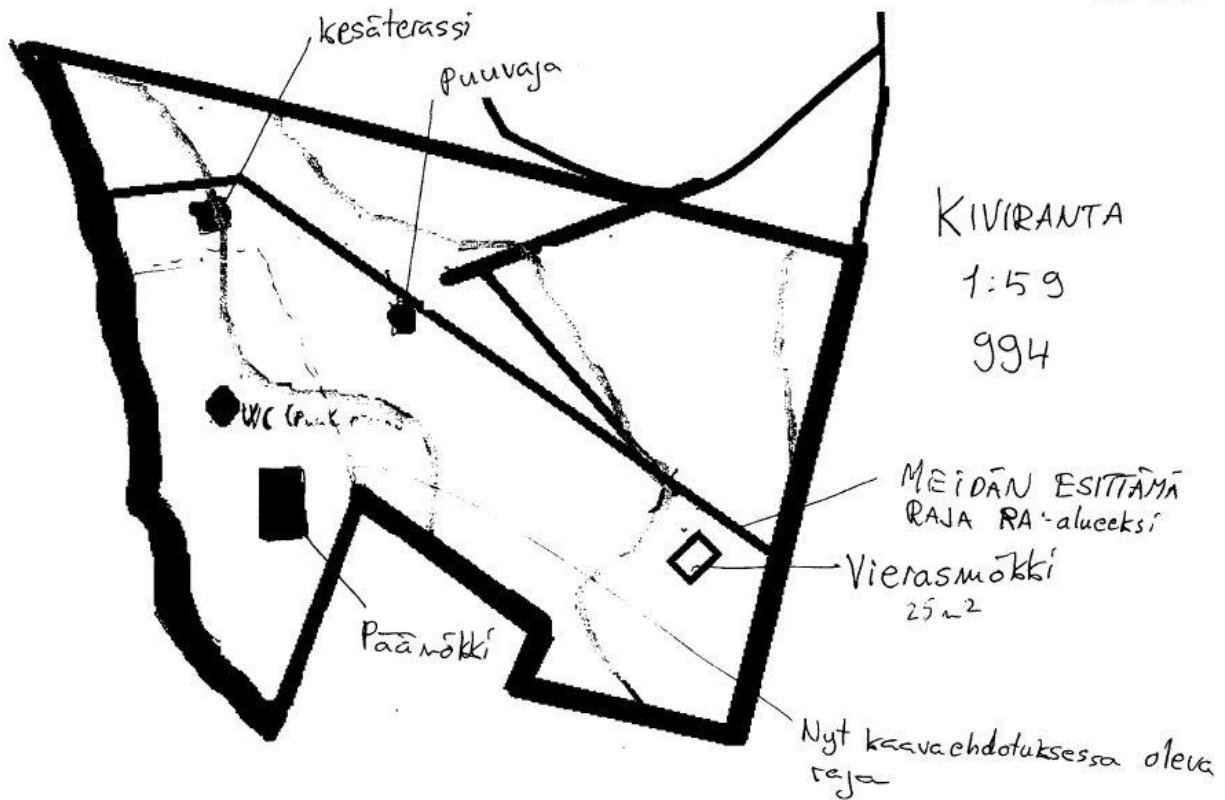 kesäterassi
Puuvaja
KIVIRANTA
1:59
994
WC
MEIDÄN ESITTÄMÄ
RAJA RA-alueeksi
Vierasmökki
25 m²
Päämökki
Nyt kaavaehdotuksessa oleva
raja